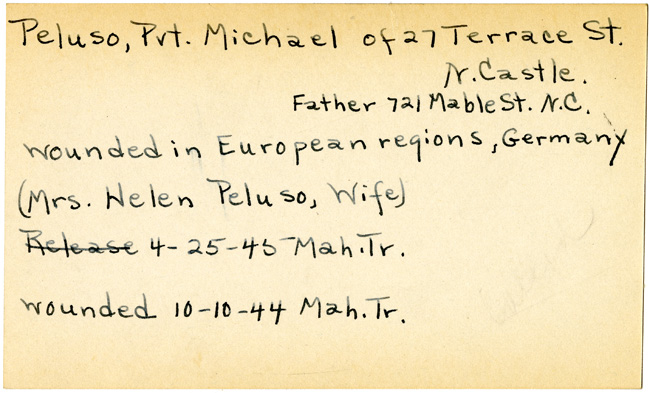 Peluso, Pvt. Michael of 27 Terrace St.
N. Castle.
Father 721 Mable St. N.C.
wounded in European regions, Germany
(Mrs. Helen Peluso, Wife)
Release 4-25-45 Mah.Tr.
wounded 10-10-44 Mah.Tr.